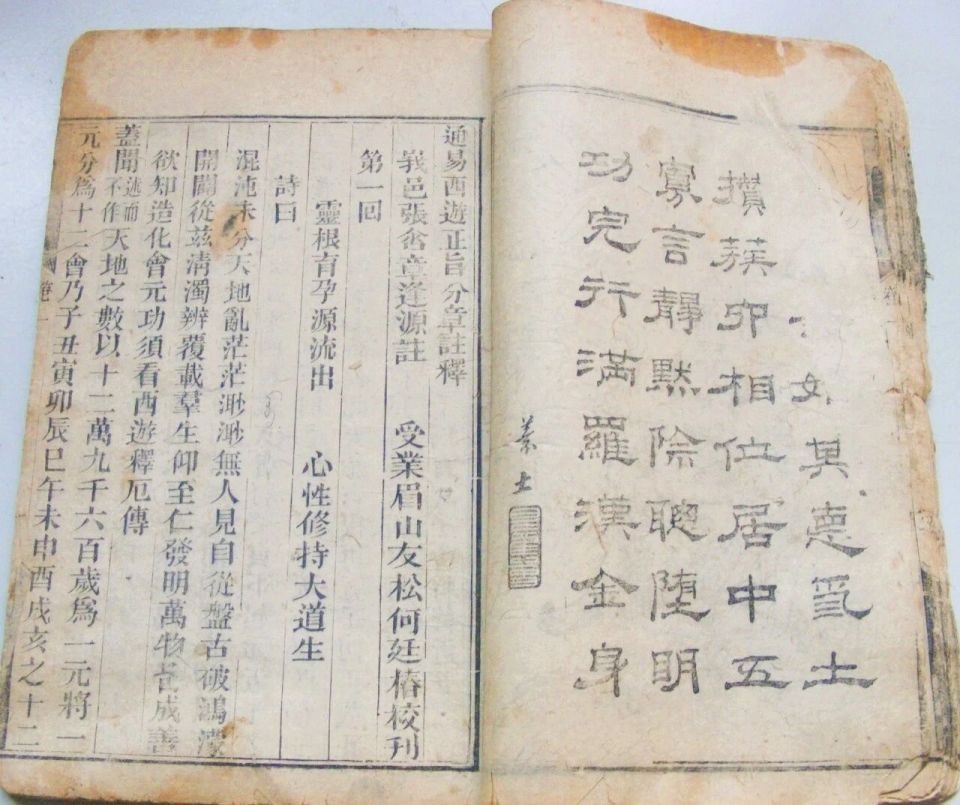 其悳爲土
攢蔟相位居中五
寡言靜默除聰墮明
功完行滿羅漢金身
通易西遊正旨分章註釋
峩邑張含章逢源註　受業眉山友松何廷椿校刊
第一回
靈根育孕源流出　心性修持大道生
詩曰
混沌未分天地亂茫茫渺渺無人見自從盤古破鴻濛
開闢從茲清濁辨覆載羣生仰至仁發明萬物皆成善
欲知造化會元功須看西遊釋厄傳
蓋聞述而不作天地之數以十二萬九千六百歲爲一元將一
元分爲十二會乃子丑寅卯辰巳午未申酉戌亥之十二